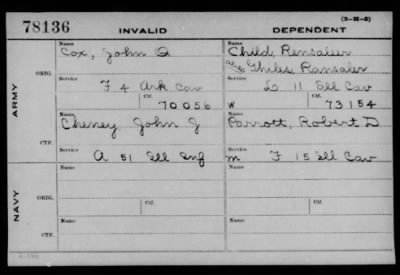 (3-21-2)
78136 INVALID DEPENDENT
Name Name
Cox, John Q Child, Rensaleer
a/c Chiles Ransaler
ARMY
ORIG. Service Service
F 4 Ark Cav L 11 Ill Cav
Ctf. Ctf.
70056 W 73154
Name Name
Cheney John J Parrott, Robert D
CTF. Service Service
A 51 Ill Inf m F 15 Ill Cav
NAVY
Name Name
ORIG.
Ctf. Ctf.
Name Name
CTF.